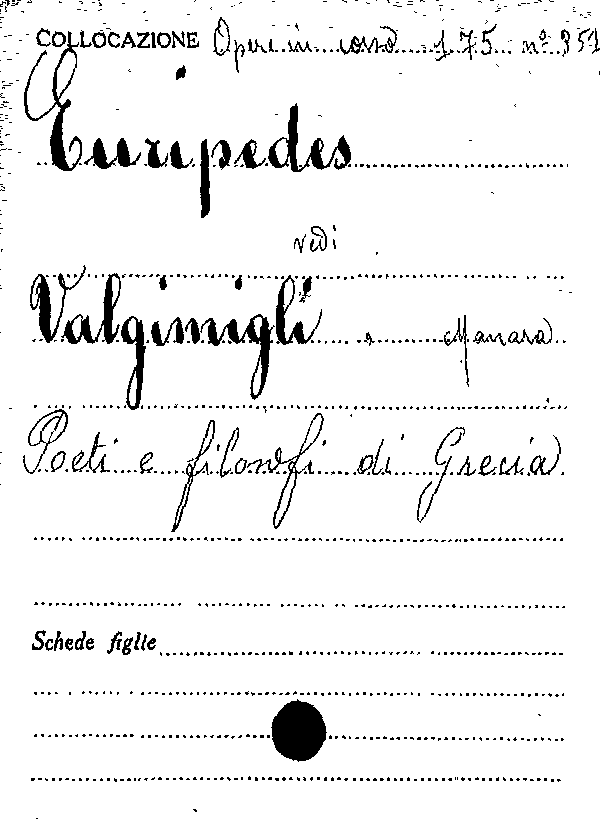 COLLOCAZIONE Opere in corso 175 n° 351
Euripedes
vedi
Valgimigli Manara
Poeti e filosofi di Grecia
Schede figlie